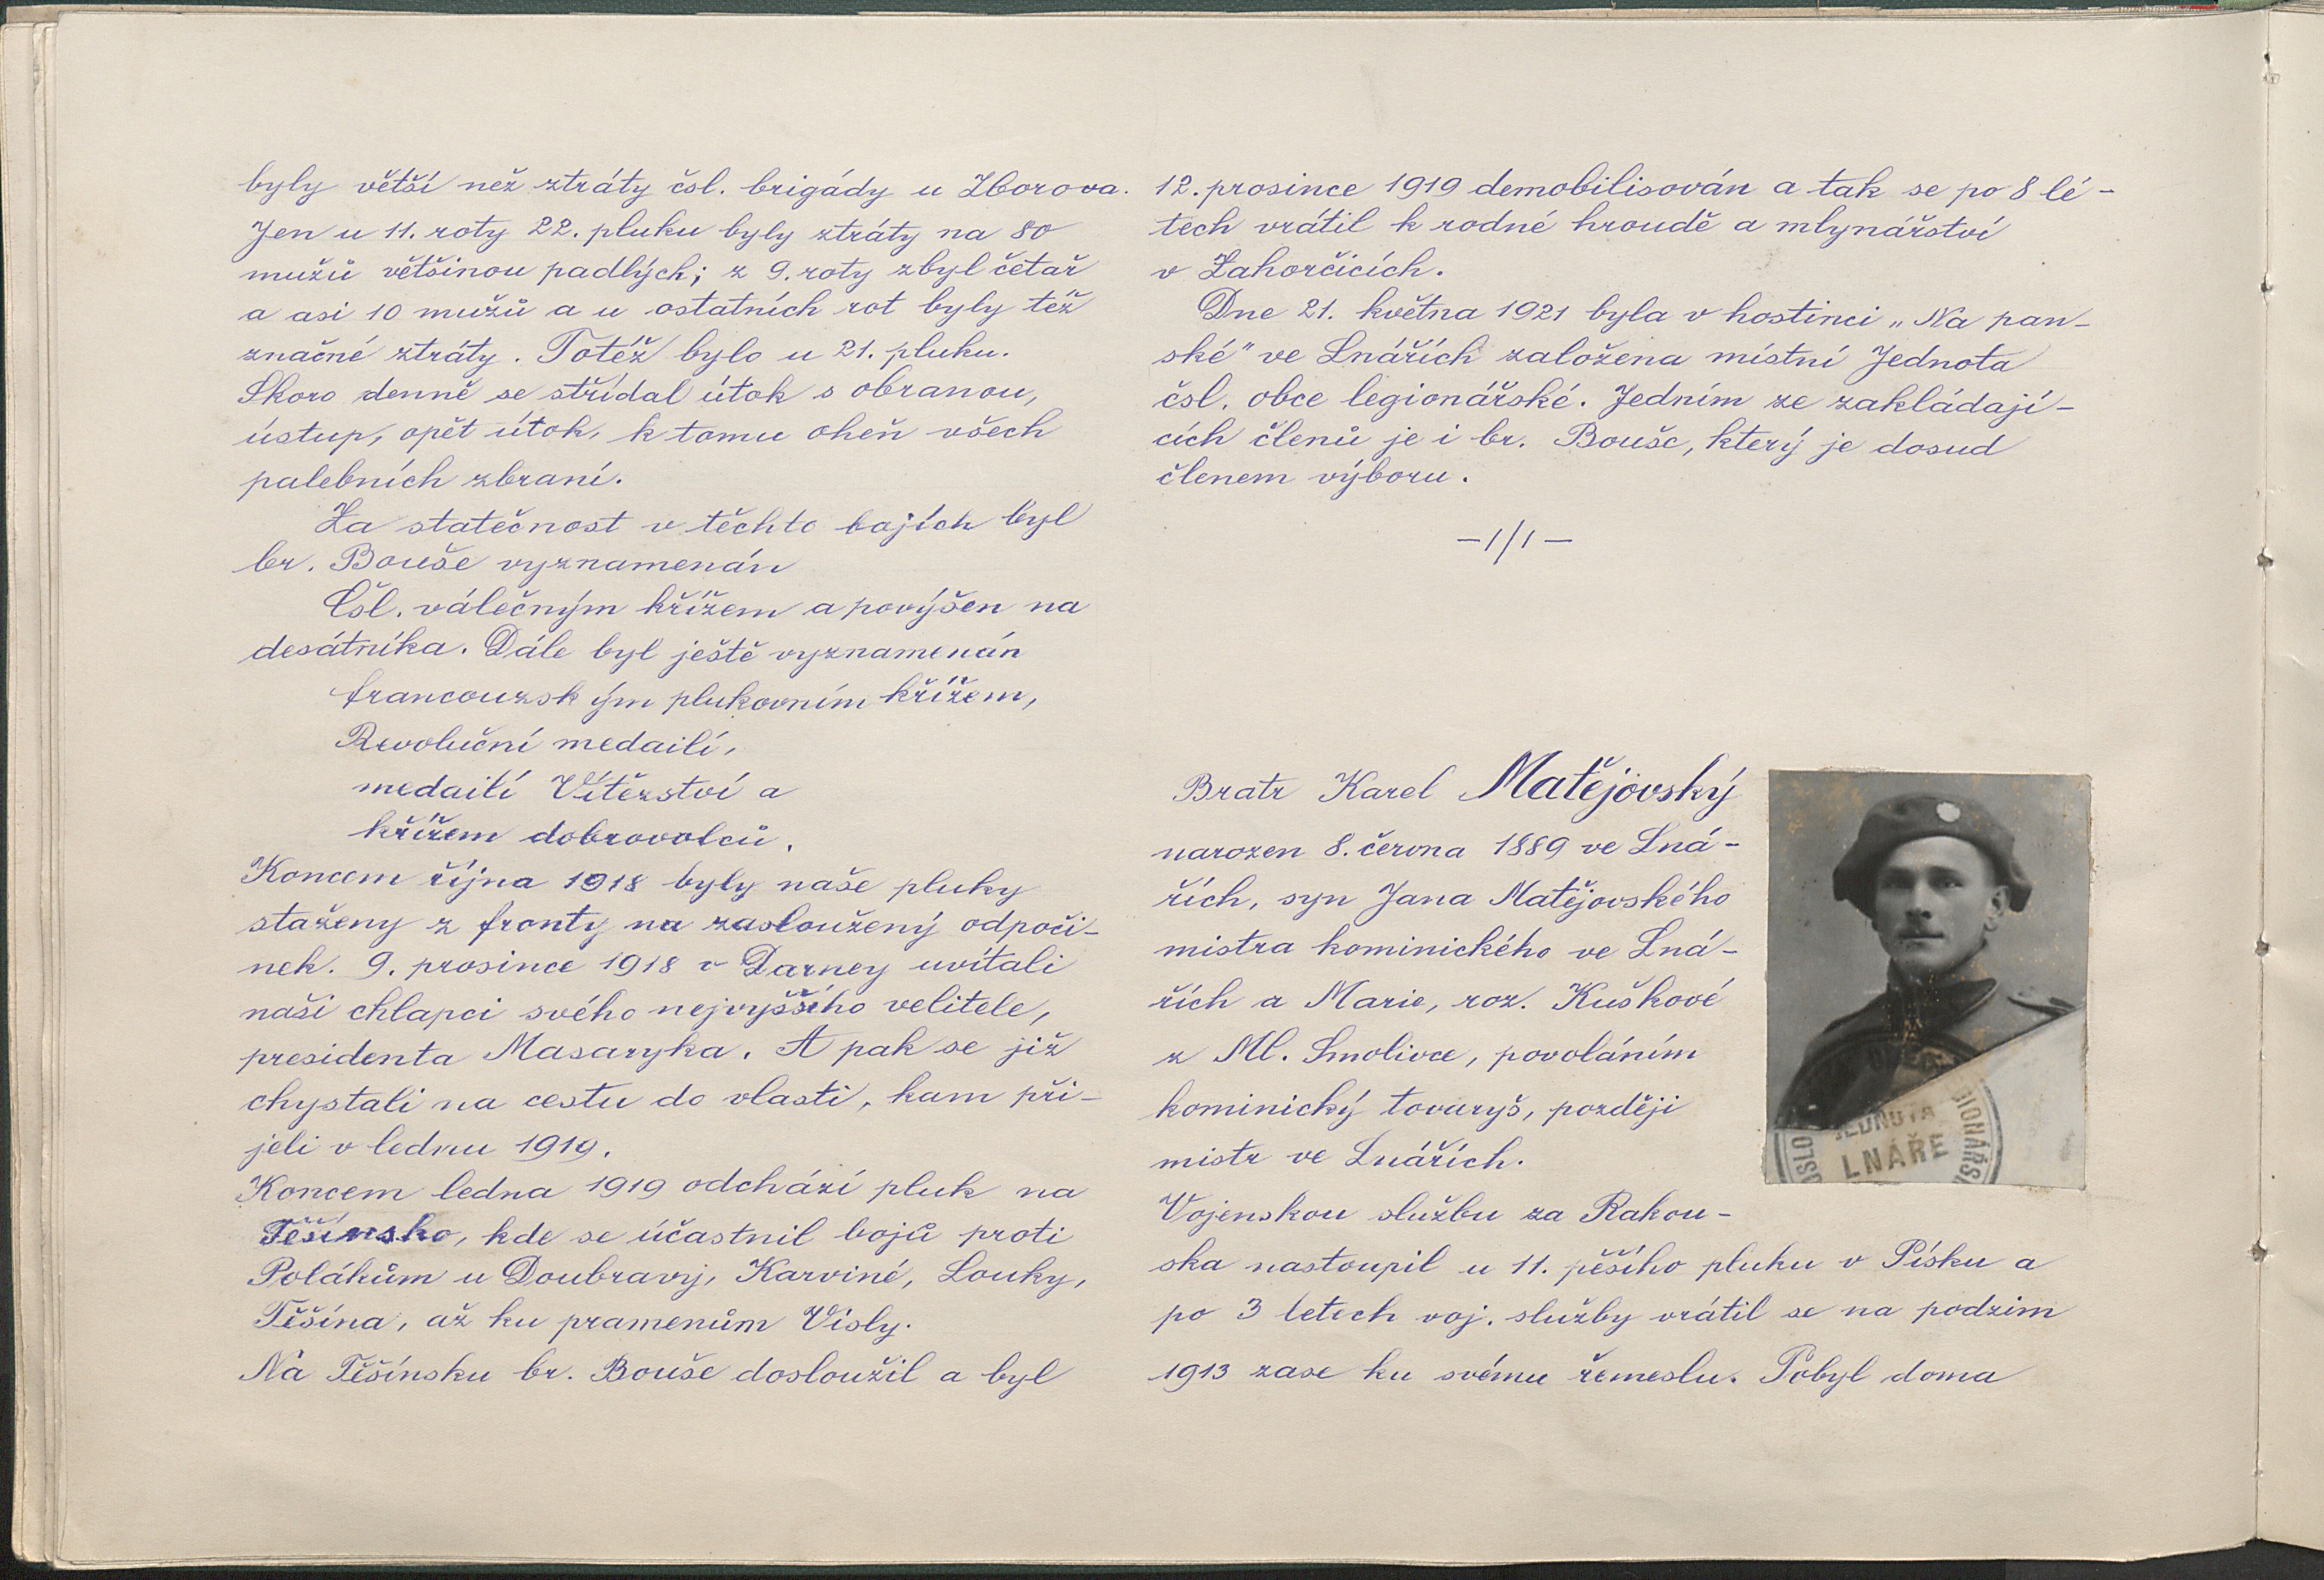 byly větší než ztráty čsl. brigády u Zborova.
Jen u 11. roty 22. pluku byly ztráty na 80
mužů většinou padlých; z 9. roty zbyl četař
a asi 10 mužů a u ostatních rot byly též
značné ztráty. Totéž bylo u 21. pluku.
Skoro denně se střídal útok s obranou,
ústup, opět útok, k tomu oheň všech
palebních zbraní.
Za statečnost v těchto bojích byl
br. Bouše vyznamenán
Čsl. válečným křížem a povýšen na
desátníka. Dále byl ještě vyznamenán
francouzským plukovním křížem,
Revoluční medailí,
medailí Vítězství a
křížem dobrovolců.
Koncem října 1918 byly naše pluky
staženy z fronty na zasloužený odpoči-
nek. 9. prosince 1918 v Darney uvítali
naši chlapci svého nejvyššího velitele,
presidenta Masaryka. A pak se již
chystali na cestu do vlasti, kam při-
jeli v lednu 1919.
Koncem ledna 1919 odchází pluk na
Těšínsko, kde se účastnil bojů proti
Polákům u Doubravy, Karviné, Louky,
Těšína, až ku pramenům Visly.
Na Těšínsku br. Bouše dosloužil a byl
12. prosince 1919 demobilisován a tak se po 8 lé-
tech vrátil k rodné hroudě a mlynářství
v Zahorčicích.
Dne 21. května 1921 byla v hostinci „Na pan-
ské" ve Lnářích založena místní Jednota
čsl. obce legionářské. Jedním ze zakládají-
cích členů je i br. Bouše, který je dosud
členem výboru.
-1/1-
Bratr Karel Matějovský
narozen 8. června 1889 ve Lná-
řích, syn Jana Matějovského
mistra kominického ve Lná-
řích a Marie, roz. Kuškové
z Ml. Smolivce, povoláním
kominický tovaryš, později
mistr ve Lnářích.
Vojenskou službu za Rakou-
ska nastoupil u 11. pěšího pluku v Písku a
po 3 letech voj. služby vrátil se na podzim
1913 zase ku svému řemeslu. Pobyl doma
JEDNOTA
LNÁŘE